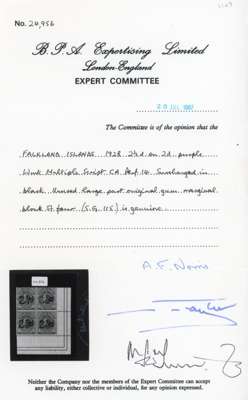 No. 20,956
B. P. A. Expertising Limited
London-England
EXPERT COMMITTEE
The Committee is of the opinion that the
FALKLAND ISLANDS 1928 2½d on 2d purple
Wmk Multiple Script CA Perf 14. Surcharged in
black. Unused large part original gum marginal
block of four (S.G. 115) is genuine
A. F. Norris
Neither the Company nor the members of the Expert Committee can accept
any liability, either collective or individual, for any opinion expressed.